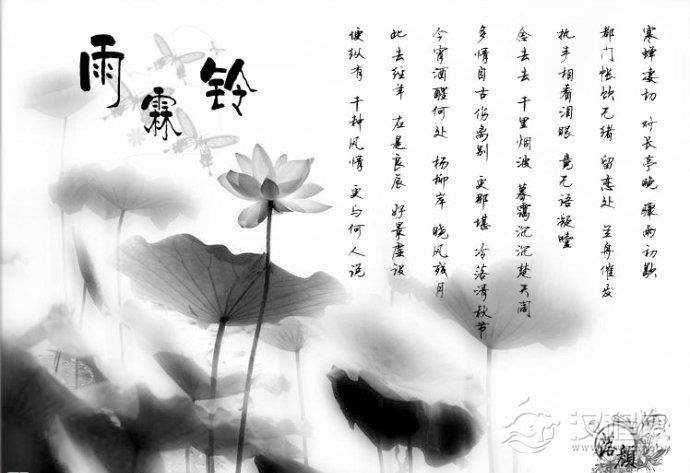 雨霖铃
寒蝉凄切 对长亭晚 骤雨初歇
都门帐饮无绪 留恋处 兰舟催发
执手相看泪眼 竟无语凝噎
念去去 千里烟波 暮霭沉沉楚天阔
多情自古伤离别 更那堪 冷落清秋节
今宵酒醒何处 杨柳岸 晓风残月
此去经年 应是良辰 好景虚设
便纵有 千种风情 更与何人说